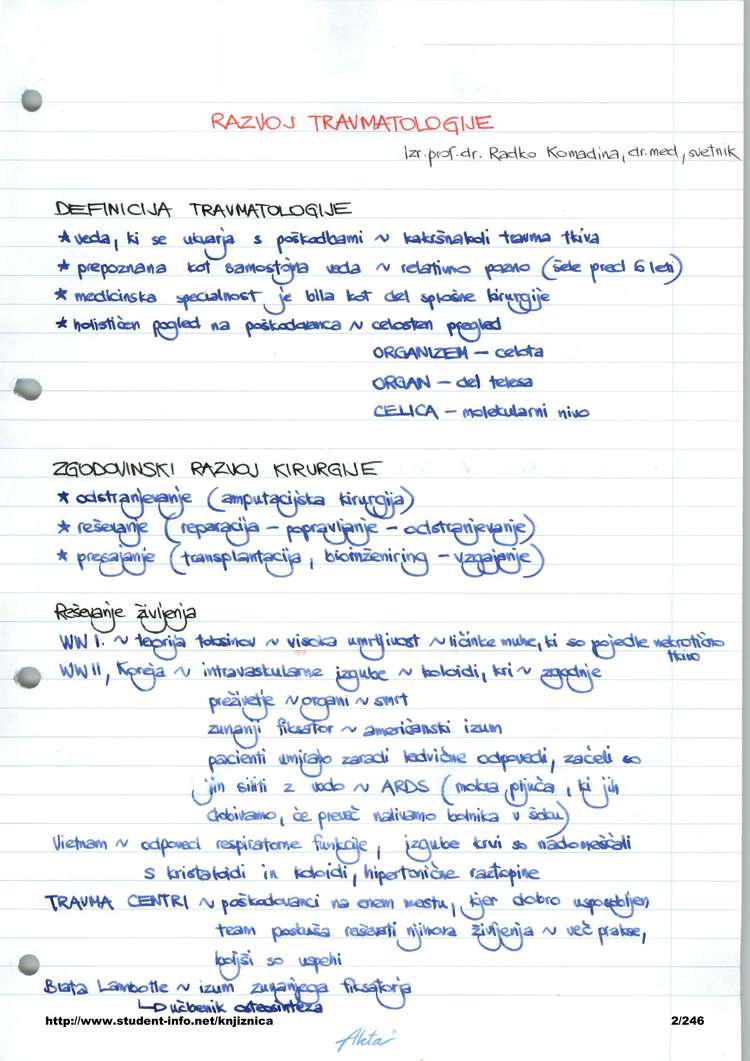 RAZVOJ TRAVMATOLOGIJE
Izr.prof.dr. Radko Komadina, dr.med, svetnik
DEFINICIJA TRAVMATOLOGIJE
* veda, ki se ukvarja s poškodbami ~ kakršnakoli travma tkiva
* prepoznana kot samostojna veda ~ relativno pozno (šele pred 6 leti)
* medicinska specialnost je bila kot del splošne kirurgije
* holističen pogled na poškodovanca ~ celosten pregled
ORGANIZEM – celota
ORGAN – del telesa
CELICA – molekularni nivo
ZGODOVINSKI RAZVOJ KIRURGIJE
* odstranjevanje (amputacijska kirurgija)
* reševanje (reparacija – popravljanje – odstranjevanje)
* presajanje (transplantacija, bioinženiring – vzgajanje)
Reševanje življenja
WW I. ~ teorija toksinov ~ visoka umrljivost ~ ličinke muhe, ki so pojedle nekrotično
tkivo
WW II, Koreja ~ intravaskularne izgube ~ koloidi, kri ~ zgodnje
preživetje ~ organi ~ smrt
zunanji fiksator ~ američanski izum
pacienti umirajo zaradi ledvične odpovedi, začeli so
jih siliti z vodo ~ ARDS (mokra pljuča, ki jih
dobivamo, če preveč nalivamo bolnika v šoku)
Vietnam ~ odpoved respiratorne funkcije, izgube krvi so nadomeščali
s kristaloidi in koloidi, hipertonične raztopine
TRAVMA CENTRI ~ poškodovanci na enem mestu, kjer dobro usposobljen
team poskuša reševati njihova življenja ~ več prakse,
boljši so uspehi
Brata Lambotte ~ izum zunanjega fiksatorja
↳ učbenik osteosinteza
http://www.student-info.net/knjiznica
2/246
Akta